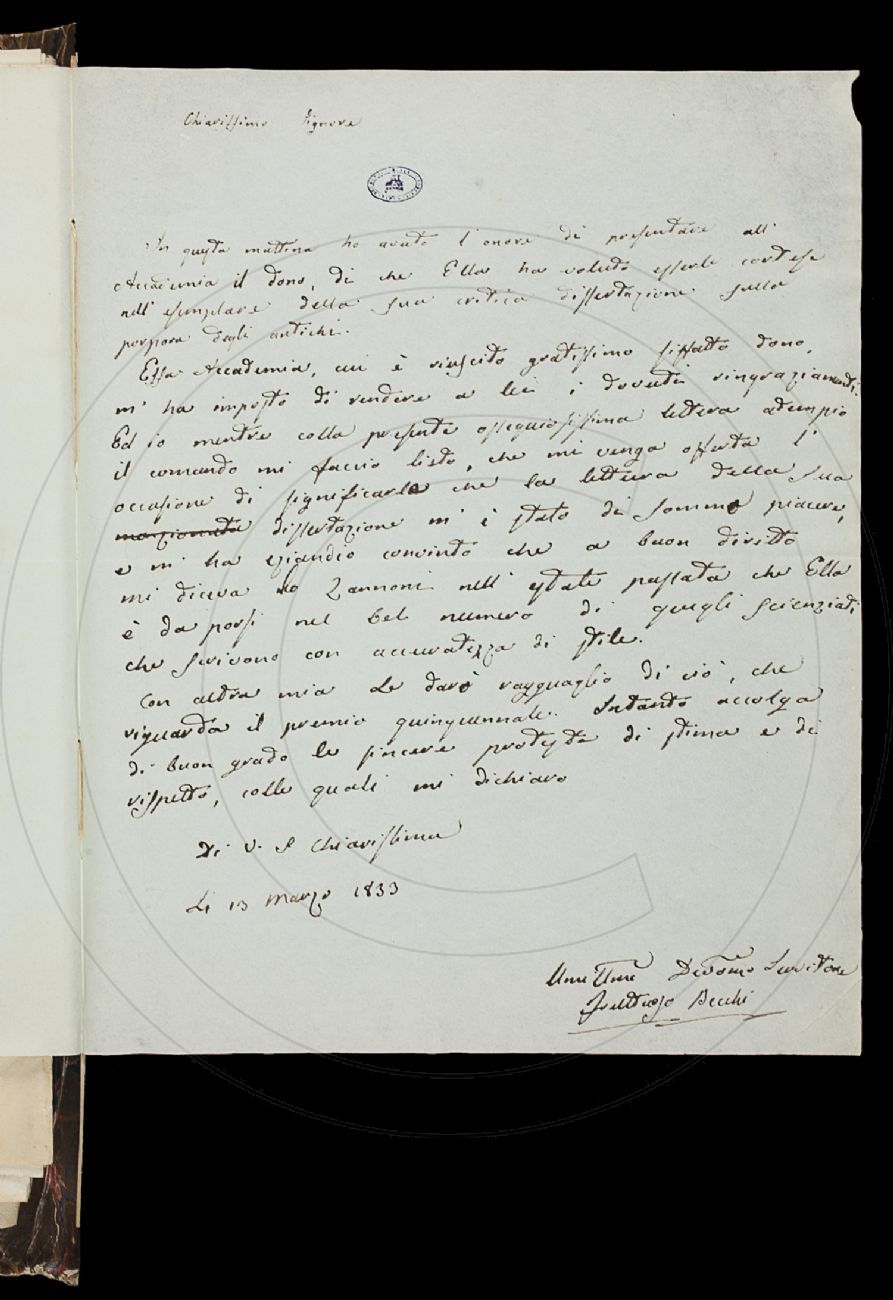 Chiarissimo Signore
In questa mattina ho avuto l'onore di presentare all'
Accademia il dono, di che Ella ha voluto esserle cortese
nell'esemplare della sua critica dissertazione sulla
porpora degli antichi.
Essa Accademia, cui è riuscito gratissimo siffatto dono,
m'ha imposto di rendere a lei i dovuti ringraziamenti.
Ed io mentre colla presente ossequiosissima lettera adempio
il comando mi faccio lieto, che mi venga offerta l'
occasione di significarle che la lettura della sua
menzionata dissertazione m'è stato di sommo piacere,
e m'ha eziandio convinto che a buon diritto
mi diceva lo Zannoni nell'estate passata che Ella
è da porsi nel bel numero di quegli scienziati
che scrivono con accuratezza di stile.
Con altra mia Le darò ragguaglio di ciò, che
riguarda il premio quinquennale. Intanto accolga
di buon grado le sincere proteste di stima e di
rispetto, colle quali mi dichiaro
Di V. S. Chiarissima
Li 13 Marzo 1833
Devōmo Servitore
Fruttuoso Becchi